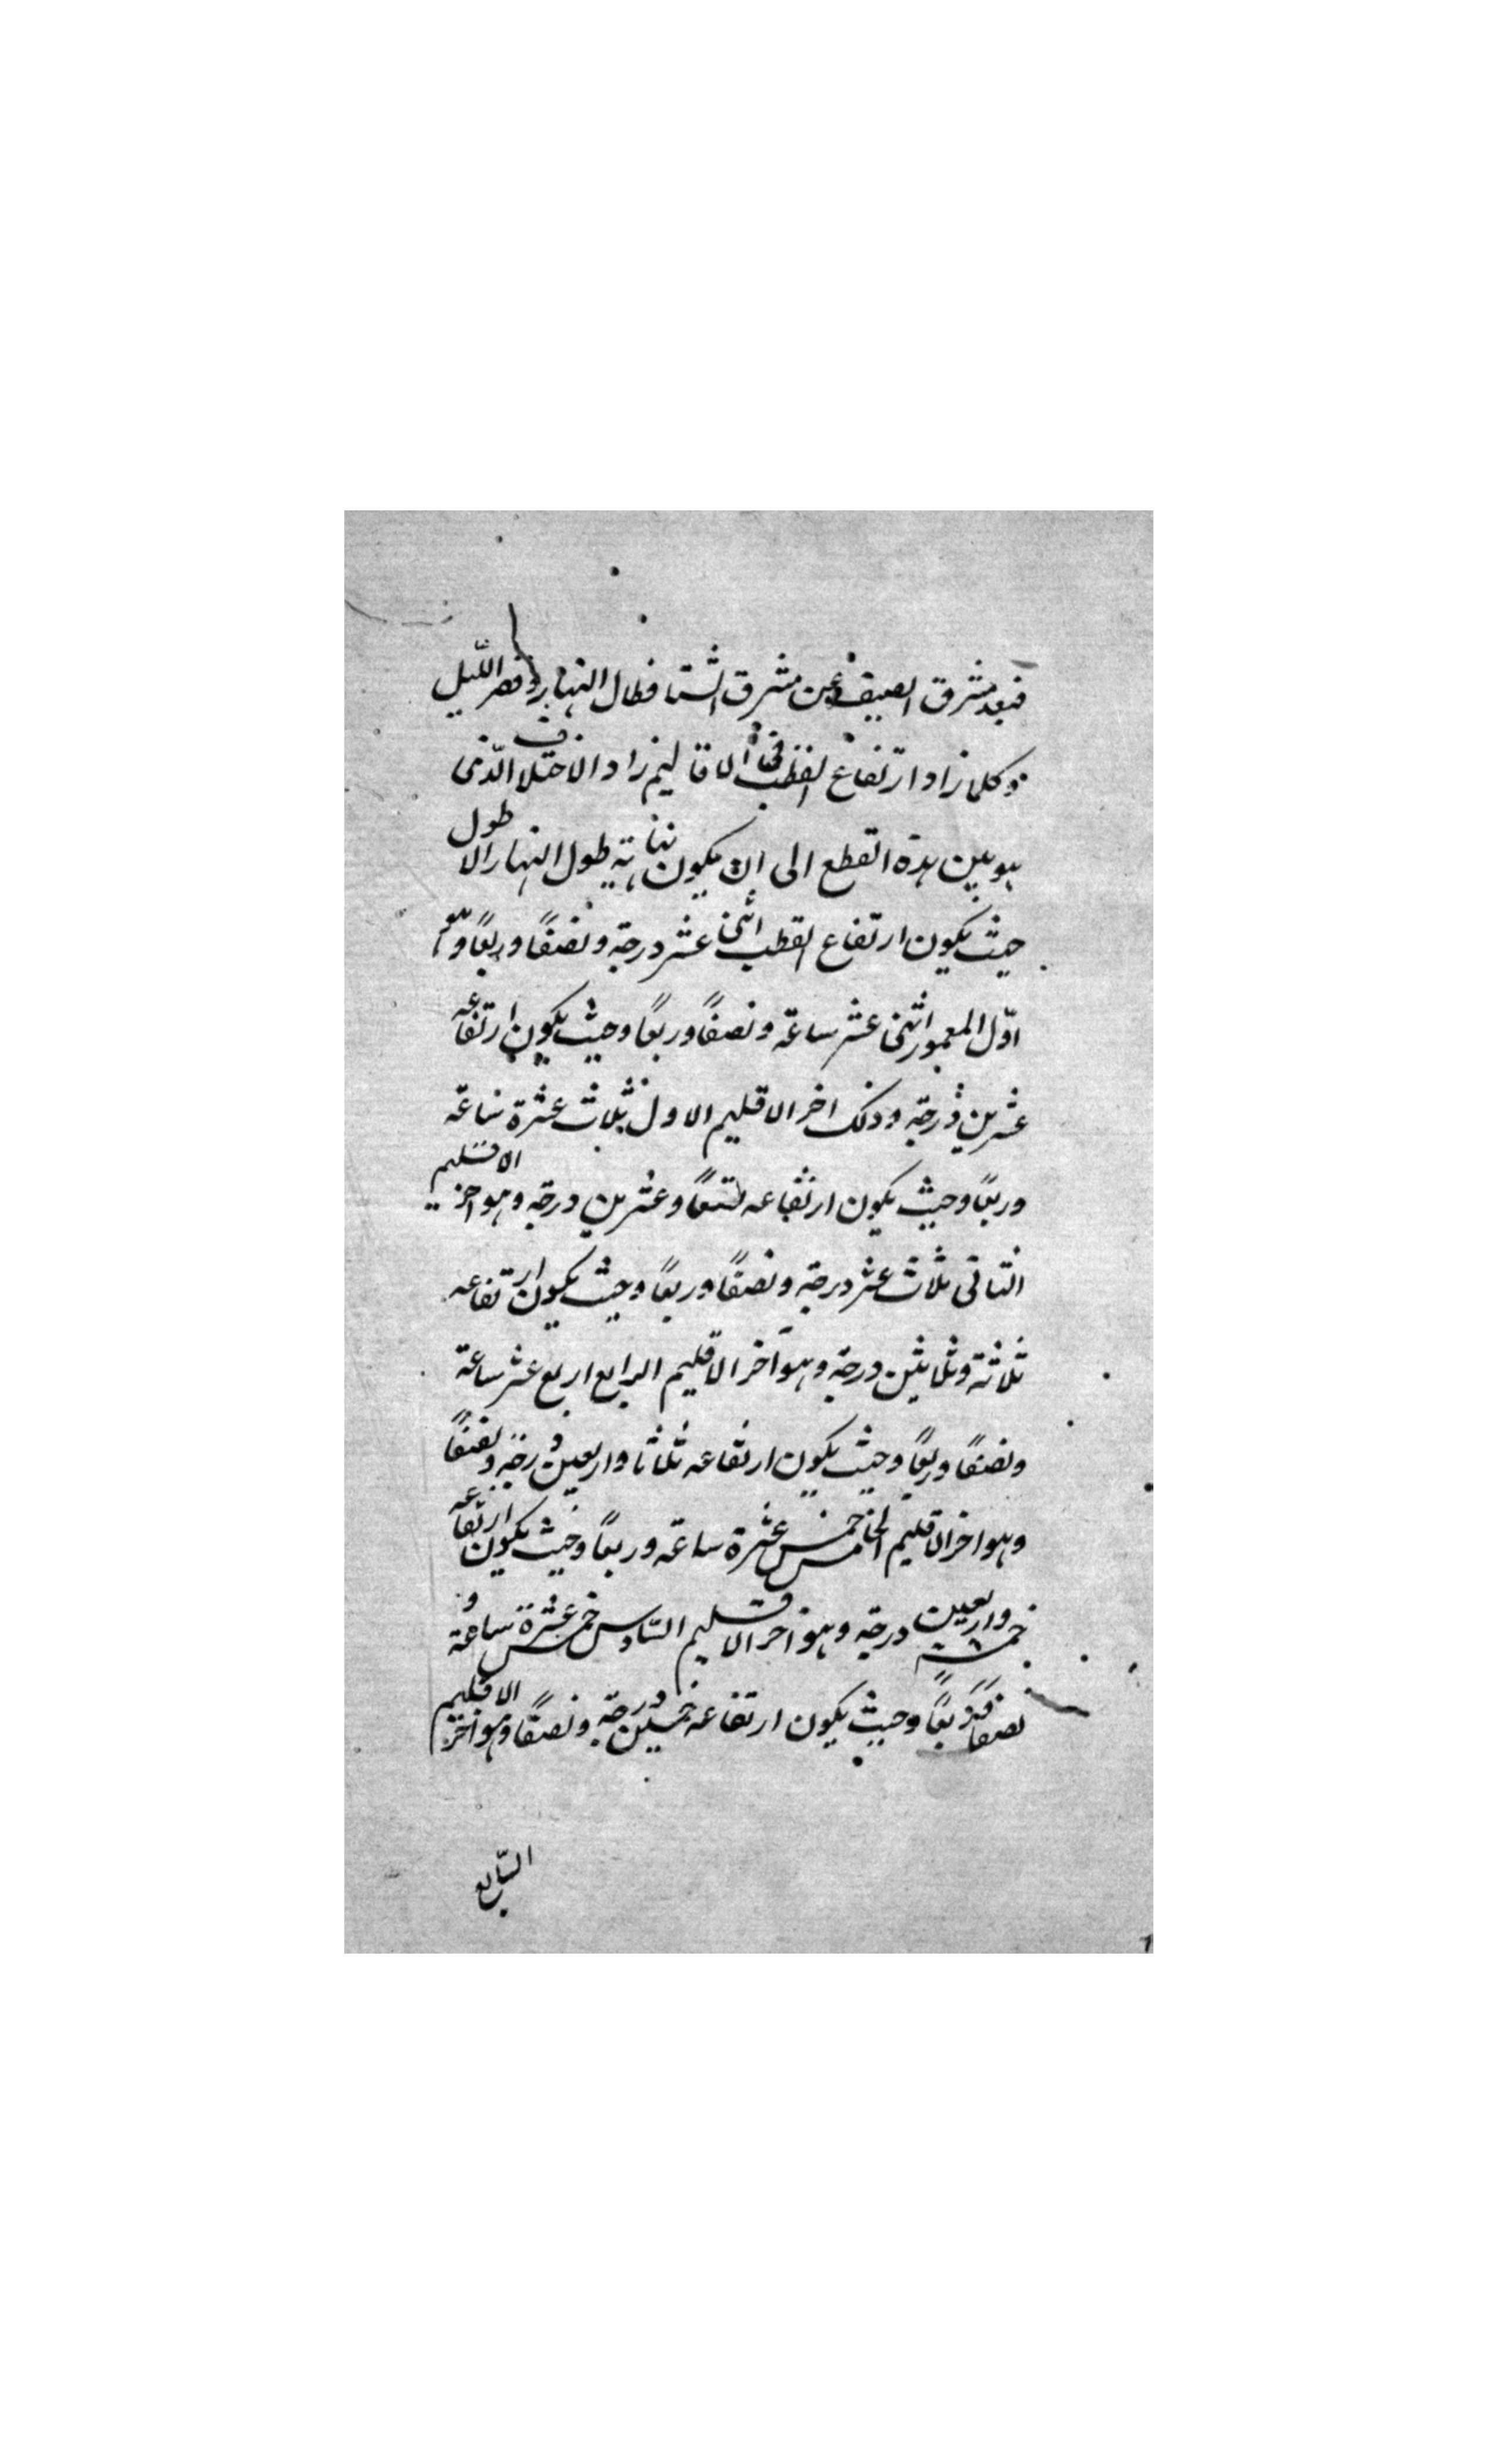 فبعد مشرق الصيف عن مشرق الشتا فطال النهار وقصر الليل
وكلما زاد ارتفاع القطب فى الاقاليم زاد الاختلاف الّذى
هو بين هذة القطع الى ان يكون نهاية طول النهار الاطول
حيث يكون ارتفاع القطب اثنى عشر درجة ونصفًا وربعًا وهو
اوّل المعمور اثنى عشر ساعة ونصفًا وربعًا وحيث يكون ارتفاعه
عشرين درجة وذلك اخر الاقليم الاول ثلاث عشرة ساعة
وربعًا وحيث يكون ارتفاعه تسعًا وعشرين درجة وهو اخر الاقليم
الثانى ثلاث عشر درجة ونصفًا وربعًا وحيث يكون ارتفاعه
ثلاثة وثلاثين درجة وهو آخر الاقليم الرابع اربع عشر ساعة
ونصفًا وربعًا وحيث يكون ارتفاعه ثلاثا واربعين درجة ونصفًا
وهو اخر الاقليم الخامس خمس عشرة ساعة وربعًا وحيث يكون ارتفاعه
خمسة واربعين درجة وهو اخر الاقليم السّادس خمس عشرة ساعة و
نصفًا وربعًا وحيث يكون ارتفاعه خمسين درجة ونصفًا وهو اخر الاقليم
السّابع